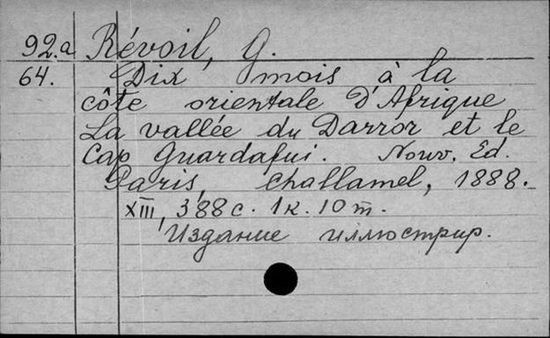 92.a Révoil, G.
64. Dix mois à la
côte orientale d'Afrique
La vallée du Darror et le
Cap Guardafui. Nouv. Ed.
Paris, Challamel, 1888.
XIII, 388 с. 1 к. 10 т.
Издание иллюстрир.